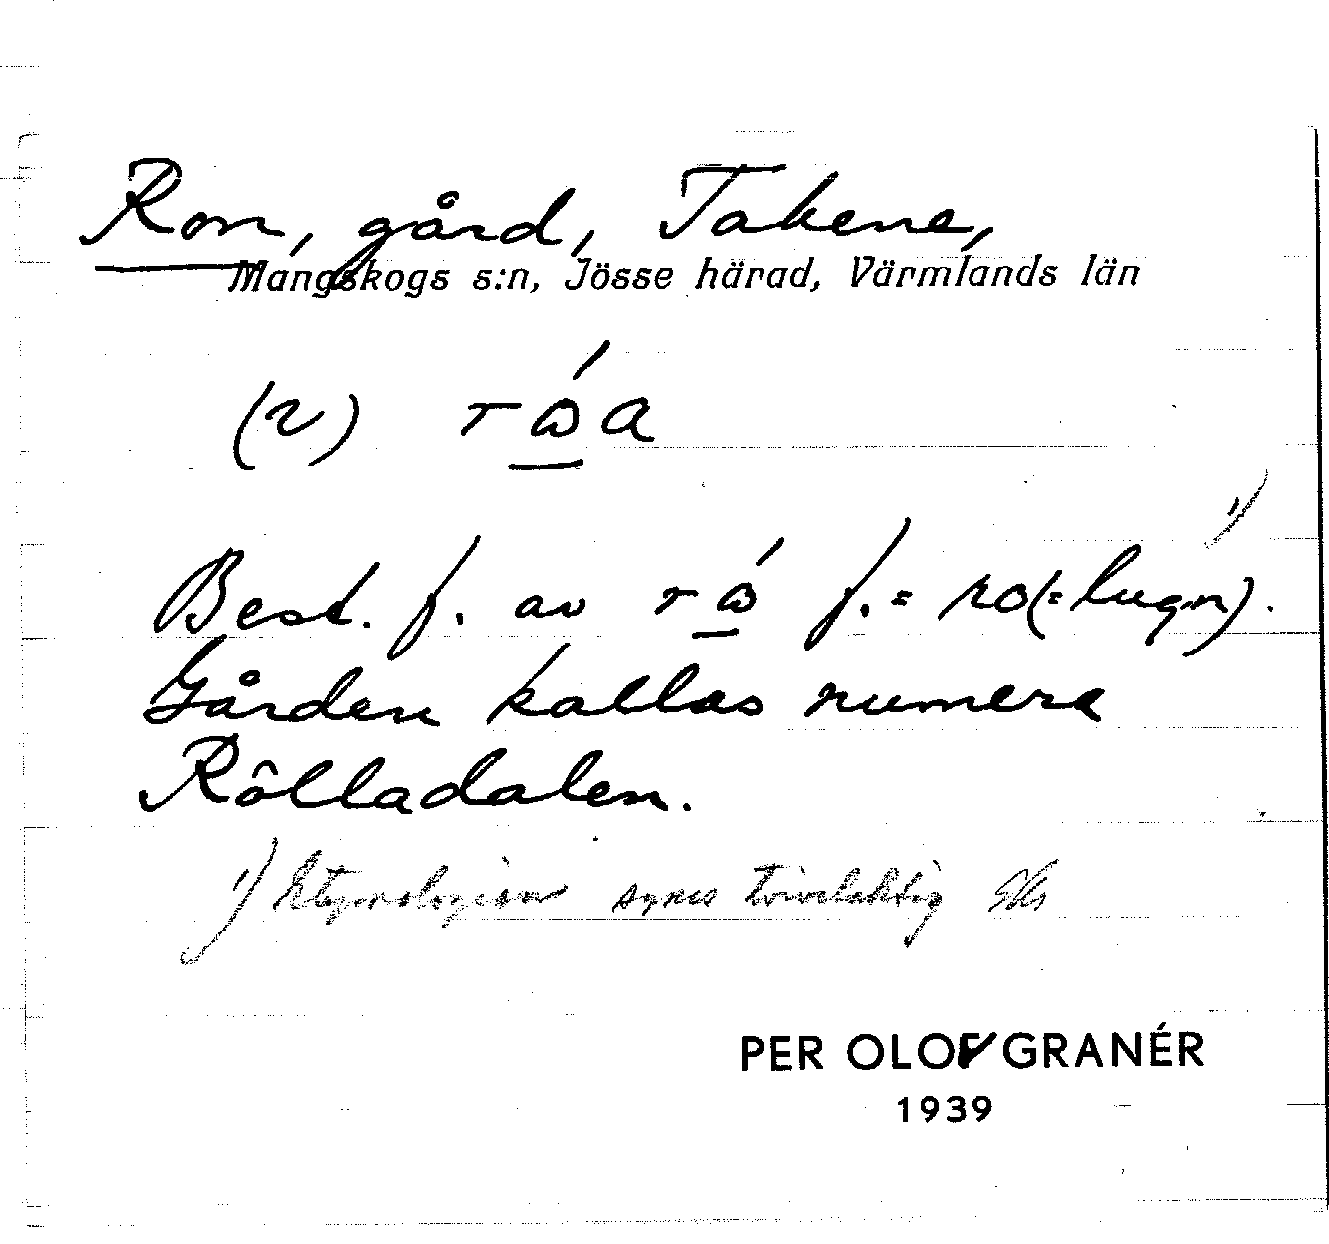 Ron, gård, Takene,
Mangskogs s:n, Jösse härad, Värmlands län
(2) rώa
Best. f. av rώ f. = ro (= lugn). 1)
Gården kallas numera
Rôlladalen.
1) Etymologien synes tvivelaktig
PER OLOF GRANÉR
1939